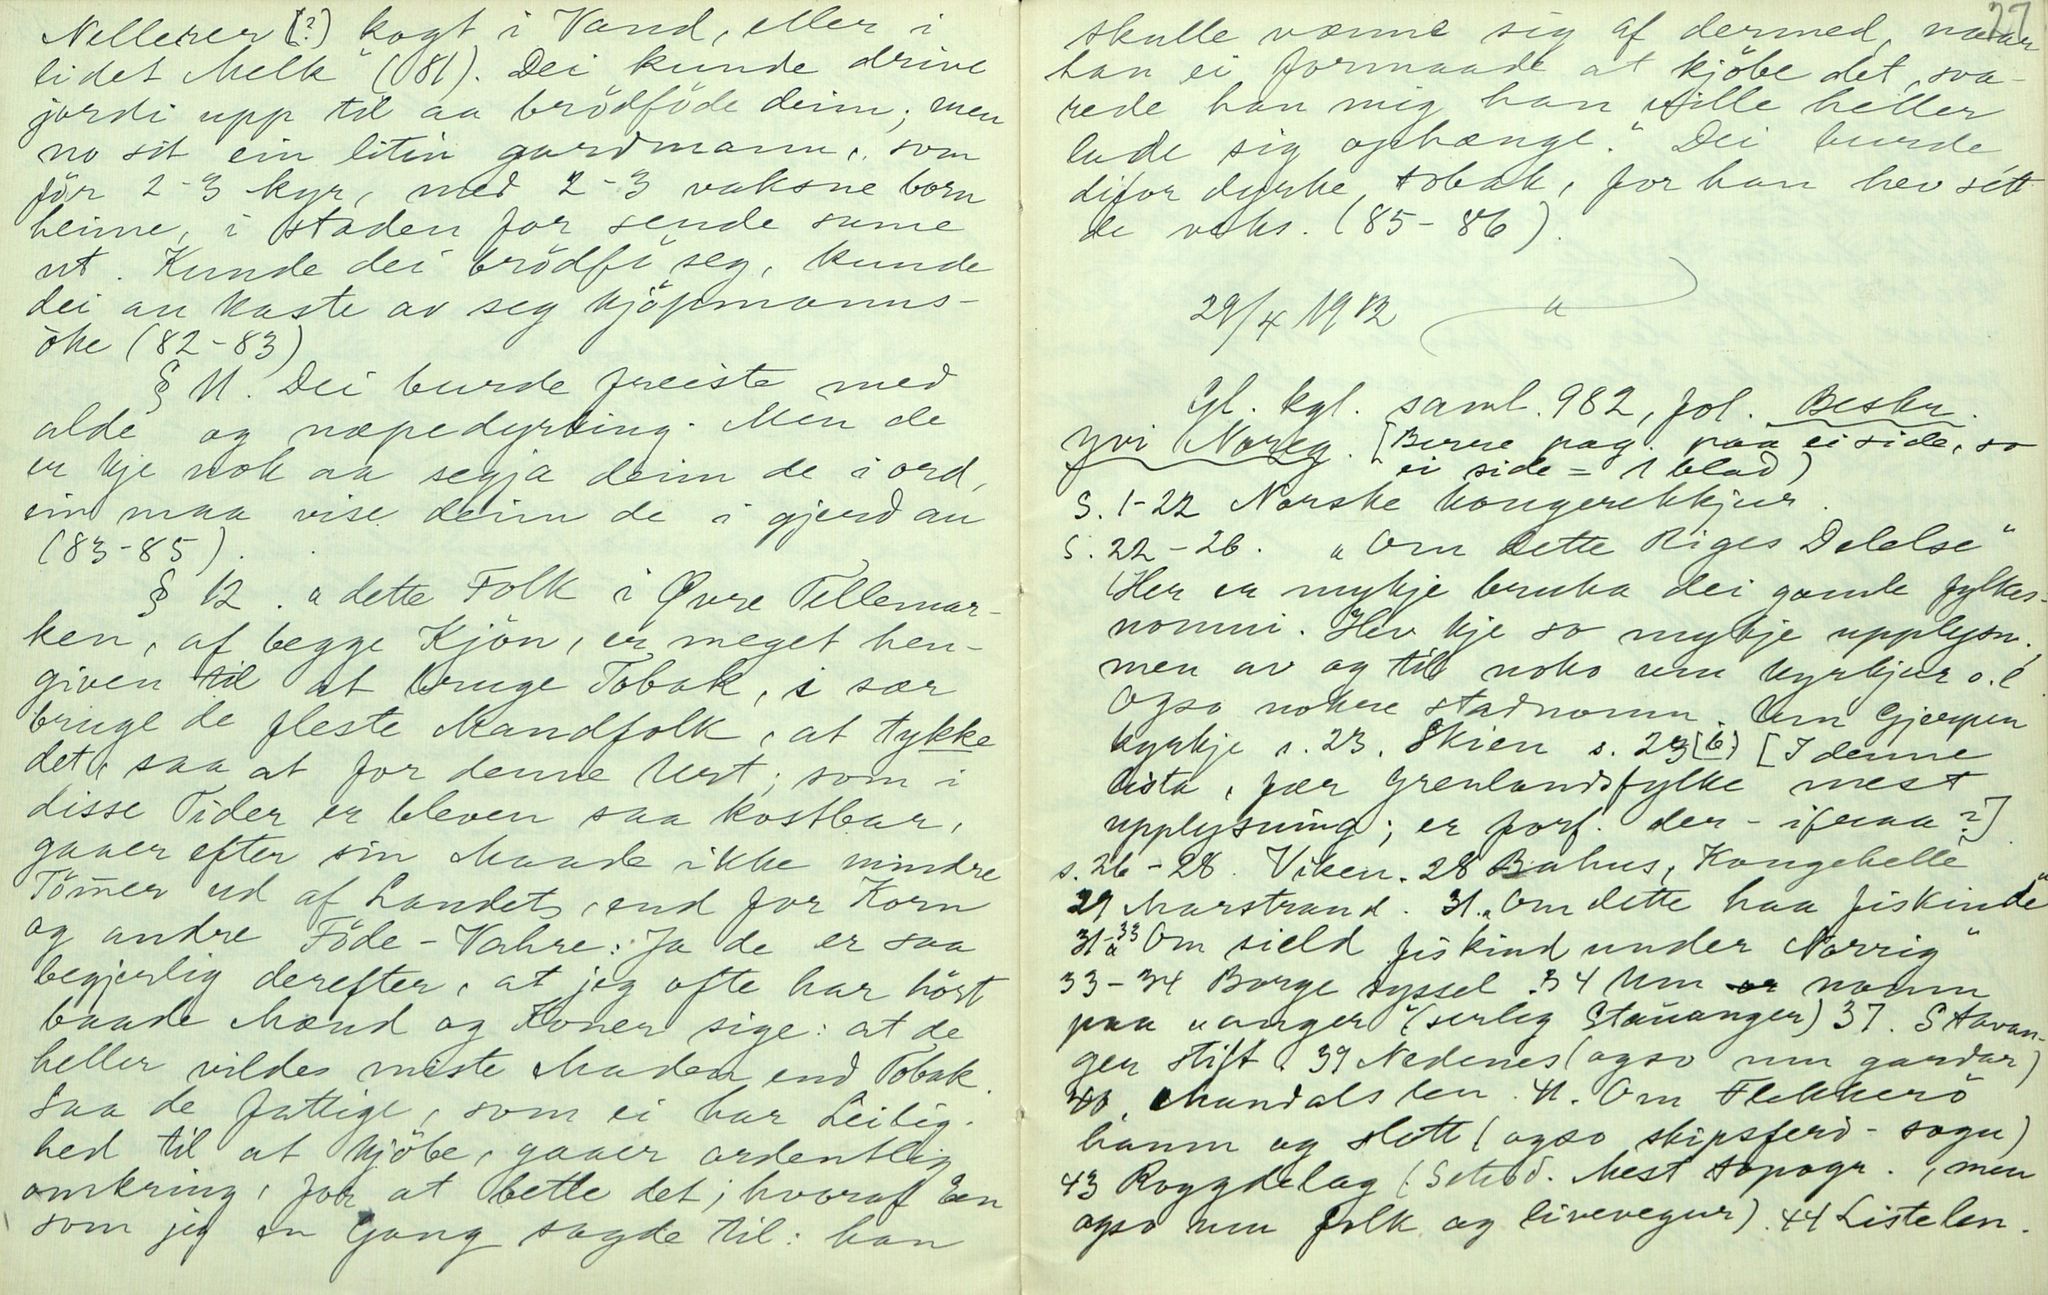 Nellerer [?] kogt i Vand, eller i
lidet Melk" (81). Dei kunde drive
jordi upp til aa brödföde deim; men
no sit ein liten gardmann, som
før 2-3 kyr, med 2-3 vaksne born
heime, i staden for sende sume
ut. Kunde dei brödfö seg, kunde
dei au kaste av seg kjöpmanns-
åke (82-83)
§ 11. Dei burde freiste med
alde og næpedyrking. Men de
er kje nok aa segja deim de i ord,
ein maa vise deim de i gjerd au
(83-85).
§ 12. "dette Folk i Øvre Tellemar-
ken, af begge Kjön, er meget hen-
given til at bruge Tobak, i sær
bruge de fleste Mandfolk, at tykke
det, saa at for denne Urt; som i
disse Tider er bleven saa kostbar,
gaaer efter sin Maade ikke mindre
Tömer ud af Landet, end for Korn
og andre Föde-Vahre: Ja de er saa
begjerlig derefter, at jeg ofte har hört
baade Mænd og Koner sige: at de
heller vildes miste Maden end Tobak.
Saa de fattige, som ei har Leilig-
hed til at kjöbe, gaaer ordentlig
omkring, for at betle det; hvoraf Een
som jeg en Gang sagde til: han
27
skulle vænne sig af dermed, naar
han ei formaade at kjöbe det, sva-
rede han mig han ville heller
lade sig ophænge." Dei burde
difor dyrke tobak, for han hev sétt
de veks. (85-86).
29/4 1912
Gl. kgl. saml. 982, fol. Beskr.
yvi Noreg. [Berre pag. paa ei side, so
ei side = 1 blad)
S. 1-22 Norske kongerekkjur.
S. 22-26. "Om dette Riges Delelse"
(Her er mykje bruka dei gamle fylkes-
nomni. Hev kje so mykje upplysn.,
men av og til noko um kyrkjur o.l.
Ogso nokre stadnomn. Um Gjerpen
kyrkje s. 23. Skien s. 23(b) [I denne
lista, fær Grenlandsfylke mest
upplysning; er forf. der-ifraa?]
s. 26-28. Viken. 28 Bahus, Kongehelle
29 Marstrand. 31. "Om dette haa fiskinde"
31-33 "Om sield fiskind under Norrig"
33-34 Borge syssel. 34 Um nomn
paa "anger" (serleg Stauanger) 37. Stavan-
ger stift. 39 Nedenes (ogso um gardar)
40. Mandals len. 41. Om Flekkerö
hamn og slott (ogso skipsferd-sogu)
43 Roggdelag (Setesd. Mest topogr., men
ogso um folk og livevegur). 44 Listelen.